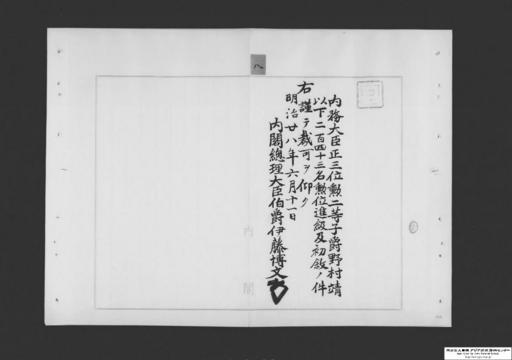 内務大臣正三位勲二等子爵野村靖
以下二百四十三名勲位進級及初敘ノ件
右謹テ裁可ヲ仰ク
明治廿八年六月十一日
内閣總理大臣伯爵伊藤博文
内閣